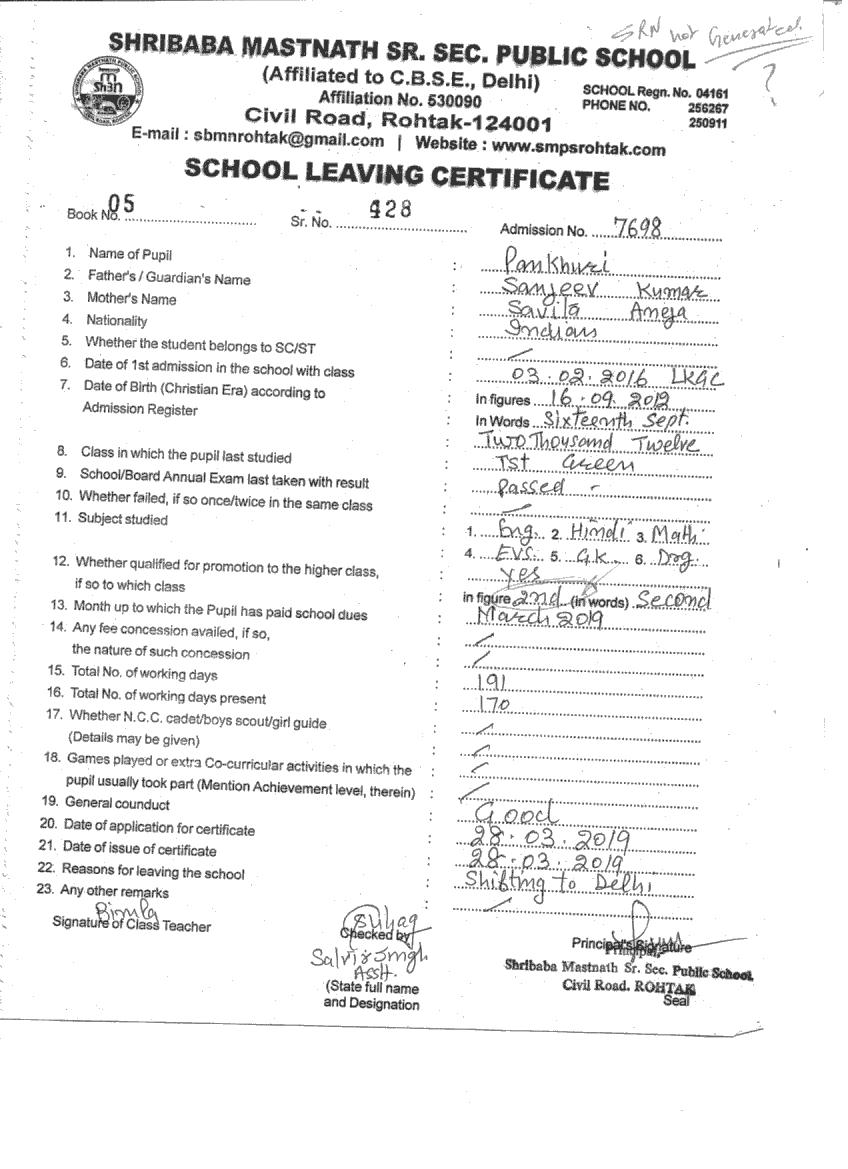 SRN not Generated.
?
SHRIBABA MASTNATH SR. SEC. PUBLIC SCHOOL
(Affiliated to C.B.S.E., Delhi)
Affiliation No. 530090
SCHOOL Regn. No. 04161
PHONE NO. 256267
250911
Civil Road, Rohtak-124001
E-mail : sbmnrohtak@gmail.com | Website : www.smpsrohtak.com
SCHOOL LEAVING CERTIFICATE
Book No. 05 Sr. No. 428 Admission No. 7698
1. Name of Pupil : Pankhuri
2. Father's / Guardian's Name : Sanjeev Kumar
3. Mother's Name : Savita Aneja
4. Nationality : Indian
5. Whether the student belongs to SC/ST :
6. Date of 1st admission in the school with class : 03.02.2016 LKGC
7. Date of Birth (Christian Era) according to : In figures 16.09.2012
Admission Register In Words Sixteenth Sept.
Two Thousand Twelve
8. Class in which the pupil last studied : Ist Green
9. School/Board Annual Exam last taken with result : Passed -
10. Whether failed, if so once/twice in the same class :
11. Subject studied : 1. Eng. 2. Hindi 3. Math
4. EVS. 5. G.K. 6. Drg.
12. Whether qualified for promotion to the higher class, : yes
if so to which class in figure 2nd (in words) Second
13. Month up to which the Pupil has paid school dues : March 2019
14. Any fee concession availed, if so, :
the nature of such concession :
15. Total No. of working days : 191
16. Total No. of working days present : 170
17. Whether N.C.C. cadet/boys scout/girl guide :
(Details may be given) :
18. Games played or extra Co-curricular activities in which the :
pupil usually took part (Mention Achievement level, therein) :
19. General counduct : Good
20. Date of application for certificate : 28.03.2019
21. Date of issue of certificate : 28.03.2019
22. Reasons for leaving the school : Shifting to Delhi
23. Any other remarks :
Bimla
Signature of Class Teacher
Suhag
Checked by
Asstt.
(State full name
and Designation
Principal's Signature
Principal,
Shribaba Mastnath Sr. Sec. Public School
Civil Road. ROHTAK
Seal